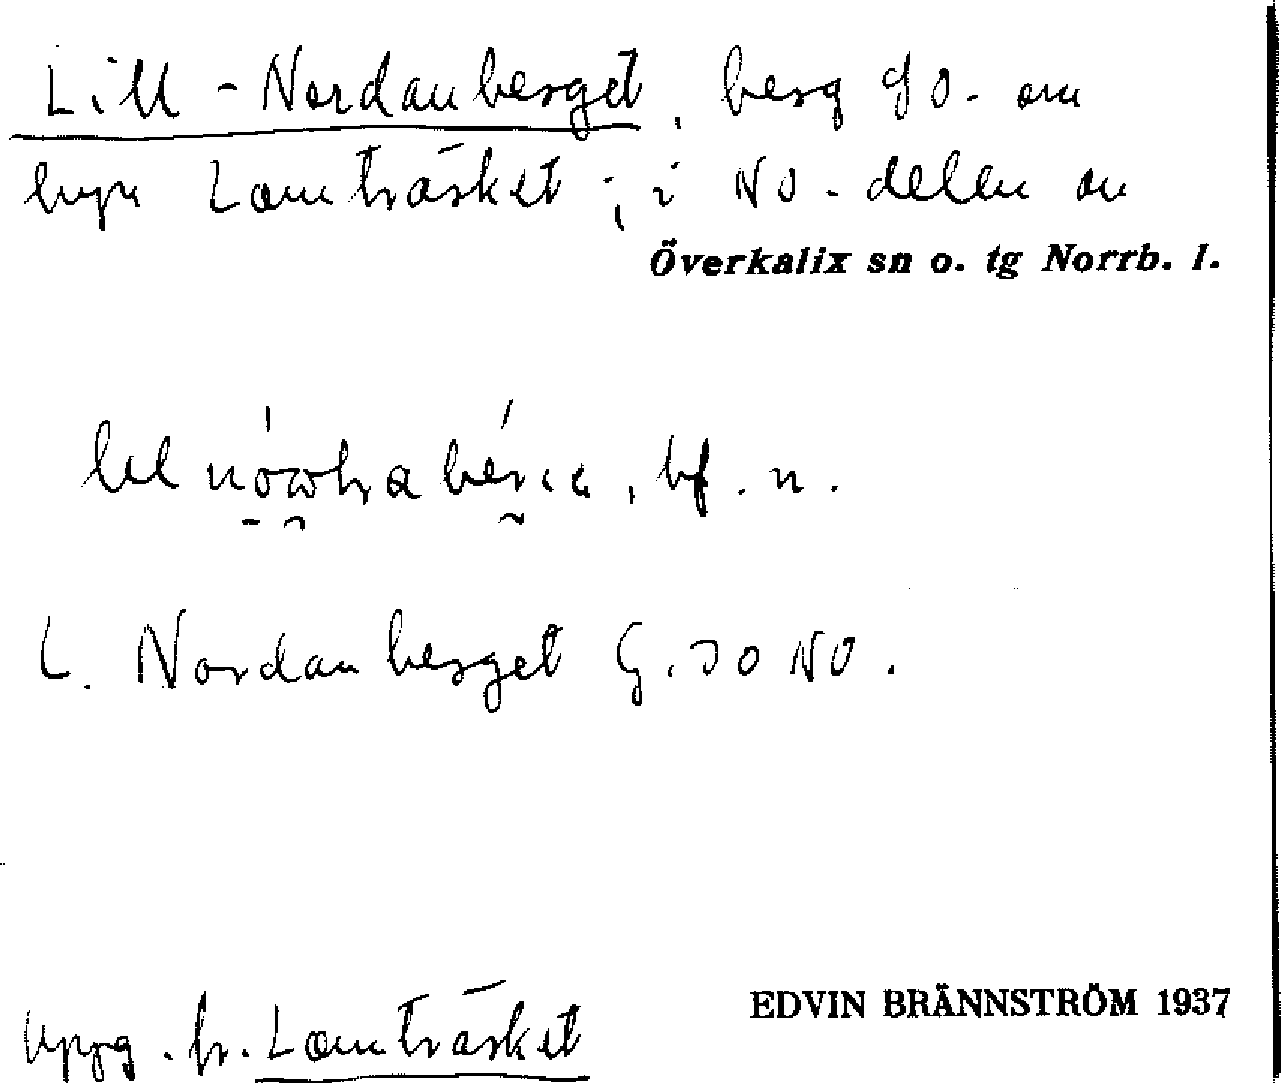 Lill-Nordanberget, berg SO. om
byn Lomträsket; i NO-delen av
Överkalix sn o. tg Norrb. l.
lɩl, bf. n.
L. Nordanberget G. 30 NO.
uppg. fr. Lomträsket
EDVIN BRÄNNSTRÖM 1937